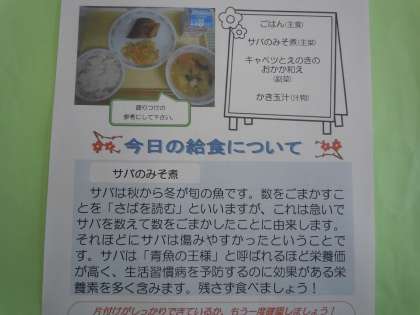 ごはん(主食)
サバのみそ煮(主菜)
キャベツとえのきの
おかか和え
(副菜)
かき玉汁(汁物)
盛りつけの
参考にして下さい。
今日の給食について
サバのみそ煮
サバは秋から冬が旬の魚です。数をごまかすこ
とを「さばを読む」といいますが、これは急いで
サバを数えて数をごまかしたことに由来します。
それほどにサバは傷みやすかったということで
す。サバは「青魚の王様」と呼ばれるほど栄養価
が高く、生活習慣病を予防するのに効果がある栄
養素を多く含みます。残さず食べましょう！
片付けがしっかりできているか、もう一度確認しましょう！